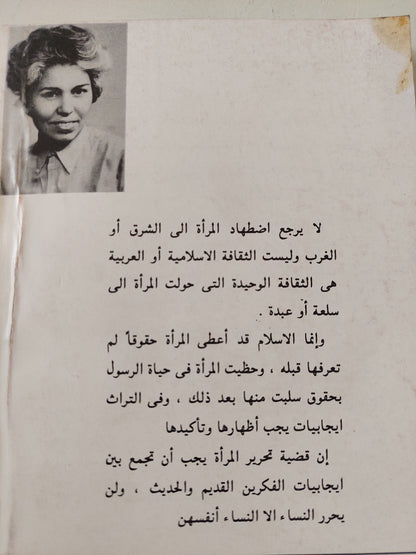 لا يرجع اضطهاد المرأة الى الشرق أو
الغرب وليست الثقافة الاسلامية أو العربية
هى الثقافة الوحيدة التى حولت المرأة الى
سلعة أو عبدة .
وإنما الاسلام قد أعطى المرأة حقوقاً لم
تعرفها قبله ، وحظيت المرأة فى حياة الرسول
بحقوق سلبت منها بعد ذلك ، وفى التراث
ايجابيات يجب أظهارها وتأكيدها
إن قضية تحرير المرأة يجب أن تجمع بين
ايجابيات الفكرين القديم والحديث ، ولن
يحرر النساء الا النساء أنفسهن